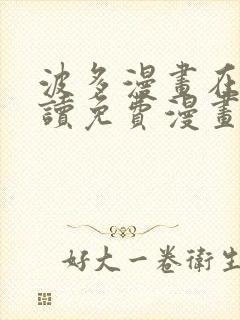 波多漫畫在
讀免費漫畫
好大一卷衛生